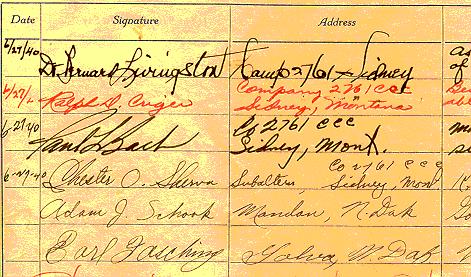 Date Signature Address
6/27/40 Dr. Bernard Livingston Camp 2761 - Sidney
of
6/27/ Ralph Company 2761 CCC
Sidney, Montana
6-27-40 Paul Co 2761 CCC
Sidney, Mont.
Co 2761 CCC
6-27-40 Chester O. Subaltern, Sidney, Mont
Adam J. Schook Mandan, N. Dak
Earl N. Dak